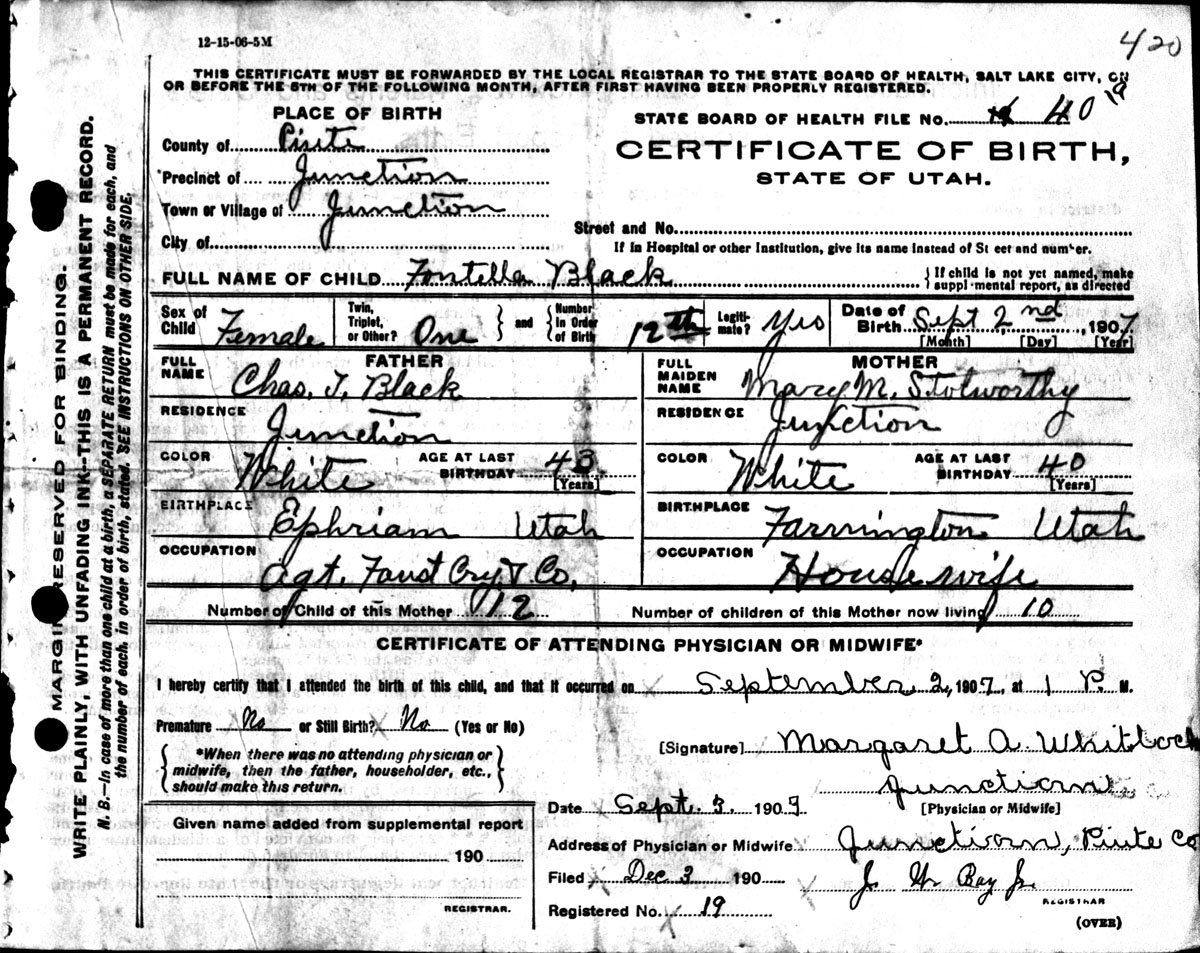 12-15-06-5M
420
THIS CERTIFICATE MUST BE FORWARDED BY THE LOCAL REGISTRAR TO THE STATE BOARD OF HEALTH, SALT LAKE CITY, ON
OR BEFORE THE 5TH OF THE FOLLOWING MONTH, AFTER FIRST HAVING BEEN PROPERLY REGISTERED.
PLACE OF BIRTH
STATE BOARD OF HEALTH FILE No. 40
County of Piute
CERTIFICATE OF BIRTH,
STATE OF UTAH.
Precinct of Junction
Town or Village of Junction
Street and No.
City of
If in Hospital or other Institution, give its name instead of St eet and number.
FULL NAME OF CHILD Fontella Black
{ If child is not yet named, make
suppl mental report, as directed
Sex of Child Female
Twin, Triplet, or Other? One } and { Number in Order of Birth 12th
Legiti-mate? Yes
Date of Birth Sept 2nd, 1907
[Month] [Day] [Year]
FATHER
FULL NAME Chas. T. Black
RESIDENCE Junction
COLOR White AGE AT LAST BIRTHDAY 43 [Years]
BIRTHPLACE Ephriam Utah
OCCUPATION Agt. Faust Cry & Co.
MOTHER
FULL MAIDEN NAME Mary M. Stolworthy
RESIDENCE Junction
COLOR White AGE AT LAST BIRTHDAY 40 [Years]
BIRTHPLACE Farmington Utah
OCCUPATION Housewife
Number of Child of this Mother 12 Number of children of this Mother now living 10
CERTIFICATE OF ATTENDING PHYSICIAN OR MIDWIFE*
I hereby certify that I attended the birth of this child, and that it occurred on September 2, 1907, at 1 P. M.
Premature No or Still Birth? No (Yes or No)
{ *When there was no attending physician or
midwife, then the father, householder, etc.,
should make this return. }
[Signature] Margaret A Whitlock
Junction
[Physician or Midwife]
Date Sept. 3. 190
Given name added from supplemental report
190
REGISTRAR.
Address of Physician or Midwife Junction, Piute Co
Filed Dec 3 190
J. W Bay Jr.
REGISTRAR
Registered No. 19
(OVER)
MARGIN RESERVED FOR BINDING.
WRITE PLAINLY, WITH UNFADING INK--THIS IS A PERMANENT RECORD.
N. B.--In case of more than one child at a birth, a SEPARATE RETURN must be made for each, and
the number of each, in order of birth, stated. SEE INSTRUCTIONS ON OTHER SIDE.